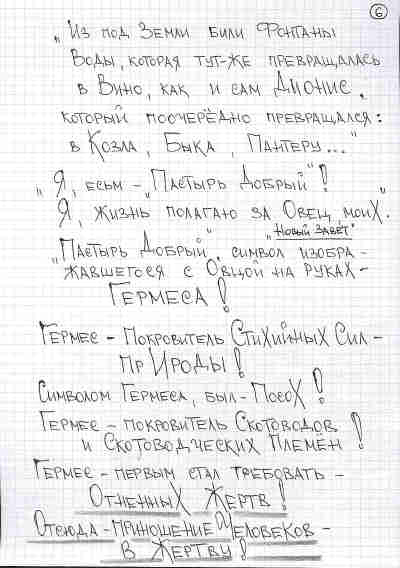 6
„Из под Земли били Фонтаны
Воды, которая тут-же превращалась
в Вино, как и сам Дионис,
который поочерёдно превращался:
в Козла, Быка, Пантеру..."
„Я, есьм – „Пастырь Добрый"!
Я, жизнь полагаю за Овец, моих."
„Новый Завет"
„Пастырь Добрый", символ изобра-
жавшегося с Овцой на руках –
Гермеса!
Гермес – Покровитель Стихийных Сил –
ПрИроды!
Символом Гермеса, был – Посох!
Гермес – покровитель Скотоводов
и Скотоводческих Племён!
Гермес – первым стал требовать –
Огненных Жертв!
Отсюда – приношение Человеков –
в Жертву!